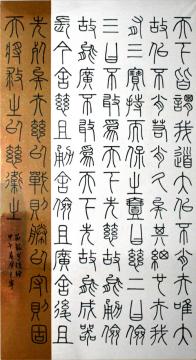 天下皆謂我道大似不肖夫唯大
故似不肖若肖久矣其細也夫我
有三寶持而保之一曰慈二曰儉
三曰不敢為天下先慈故能勇儉
故能廣不敢為天下先故能成器
長今舍慈且勇舍儉且廣舍後且
先死矣夫慈以戰則勝以守則固
天將救之以慈衛之